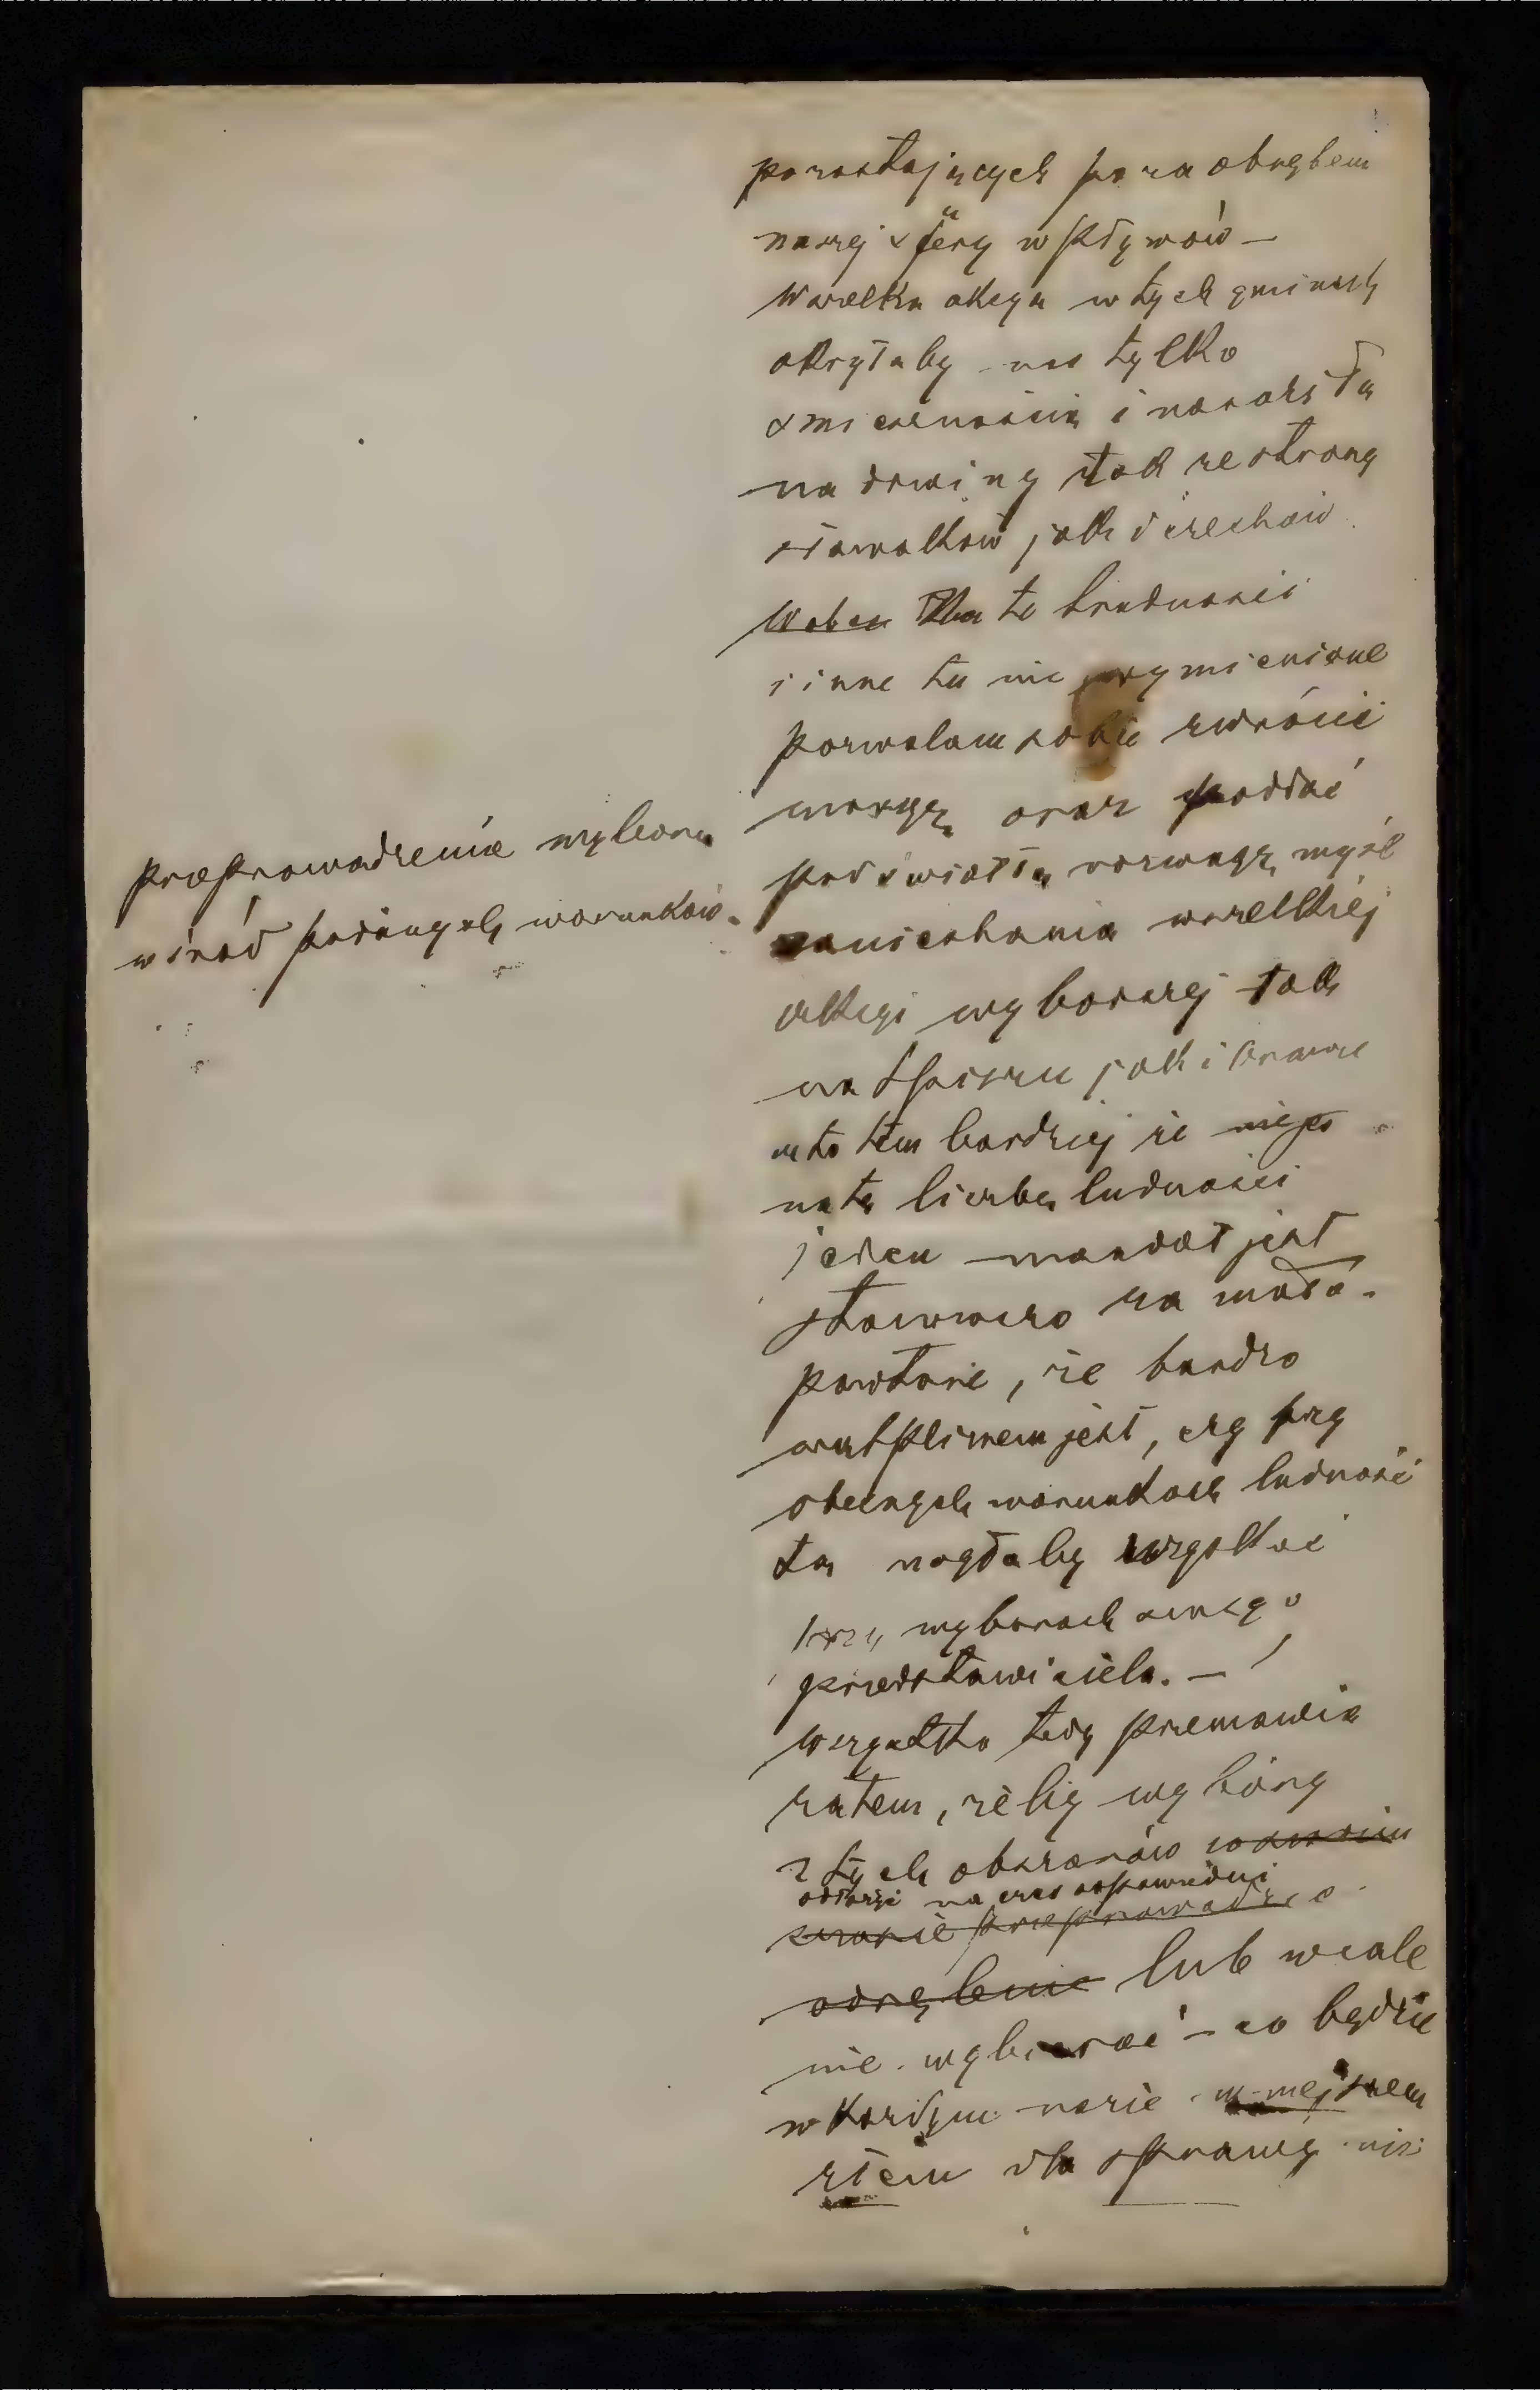 pozostających poza obrębem
naszej sfery wpływów —
Wszelka akcya w tych gminach
okryłaby nas tylko
śmiesznością i naraziła
na drwiny tak ze strony
słowaków jak i czechów
Na te trudności
i inne tu nie wymienione
pozwalam sobie zwrócić
uwagę oraz poddać
pod światłą rozwagę myśl
zaniechania wszelkiej
akcyi wyborczej tak
na Spiszu jak i Orawie
a to tem bardziej że nie po
na tę liczbę ludności
jeden mandat jest
stanowczo za mało.
powtóre, że bardzo
wątpliwem jest, czy przy
obecnych warunkach ludność
ta mogłaby uzyskać
przy wyborach swego
przedstawiciela. —
Wszystko tedy przemawia
zatem, żeby wybory
z tych obszarów
odłożyć na czas odpowiedni
lub wcale
nie wybierać — co będzie
w każdym razie mniejszem
złem dla sprawy niż
przeprowadzenie wyboru
wśród podanych warunków.